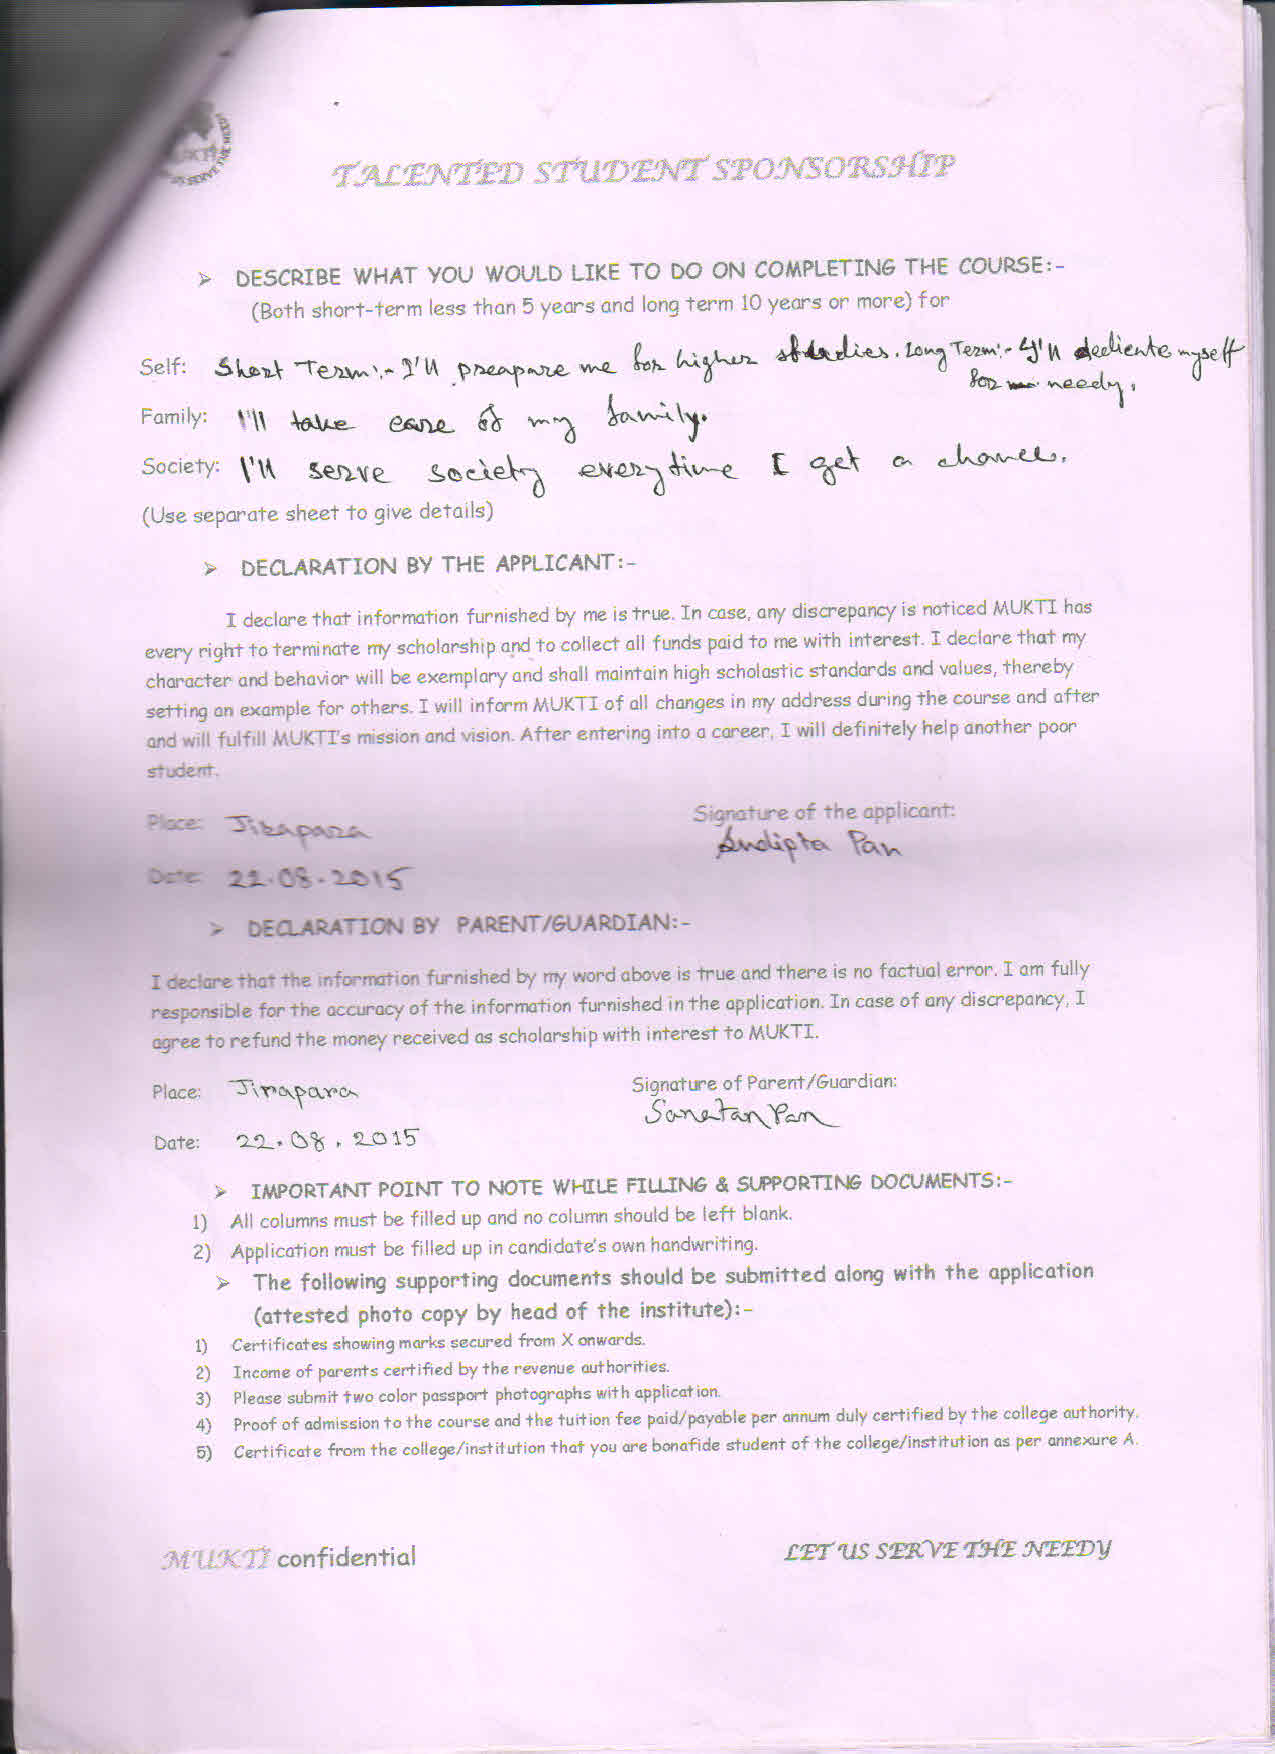 SERVE THE NEEDY
TALENTED STUDENT SPONSORSHIP
➢ DESCRIBE WHAT YOU WOULD LIKE TO DO ON COMPLETING THE COURSE:-
(Both short-term less than 5 years and long term 10 years or more) for
Self: Short Term:- I'll preapare me for higher studies. Long Term:- I'll dediente myself
for needy.
Family: I'll take care of my family.
Society: I'll serve society everytime I get a chance.
(Use separate sheet to give details)
➢ DECLARATION BY THE APPLICANT:-
I declare that information furnished by me is true. In case, any discrepancy is noticed MUKTI has
every right to terminate my scholarship and to collect all funds paid to me with interest. I declare that my
character and behavior will be exemplary and shall maintain high scholastic standards and values, thereby
setting an example for others. I will inform MUKTI of all changes in my address during the course and after
and will fulfill MUKTI's mission and vision. After entering into a career, I will definitely help another poor
student.
Place: Jirapara Signature of the applicant:
Sudipta Pan
Date: 22.08.2015
➢ DECLARATION BY PARENT/GUARDIAN:-
I declare that the information furnished by my word above is true and there is no factual error. I am fully
responsible for the accuracy of the information furnished in the application. In case of any discrepancy, I
agree to refund the money received as scholarship with interest to MUKTI.
Place: Jirapara Signature of Parent/Guardian:
Sanatan Pan
Date: 22.08.2015
➢ IMPORTANT POINT TO NOTE WHILE FILLING & SUPPORTING DOCUMENTS:-
1) All columns must be filled up and no column should be left blank.
2) Application must be filled up in candidate's own handwriting.
➢ The following supporting documents should be submitted along with the application
(attested photo copy by head of the institute):-
1) Certificates showing marks secured from X onwards.
2) Income of parents certified by the revenue authorities.
3) Please submit two color passport photographs with application.
4) Proof of admission to the course and the tuition fee paid/payable per annum duly certified by the college authority.
5) Certificate from the college/institution that you are bonafide student of the college/institution as per annexure A.
MUKTI confidential LET US SERVE THE NEEDY